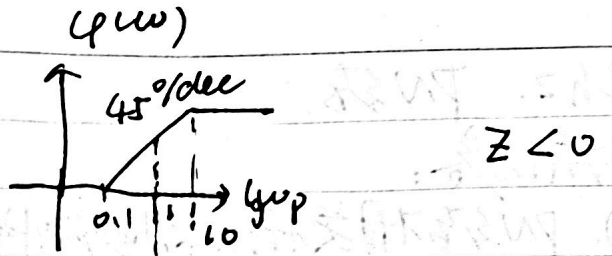 φ(ω)
45°/dec
Z < 0
0.1 1 10
lgωp